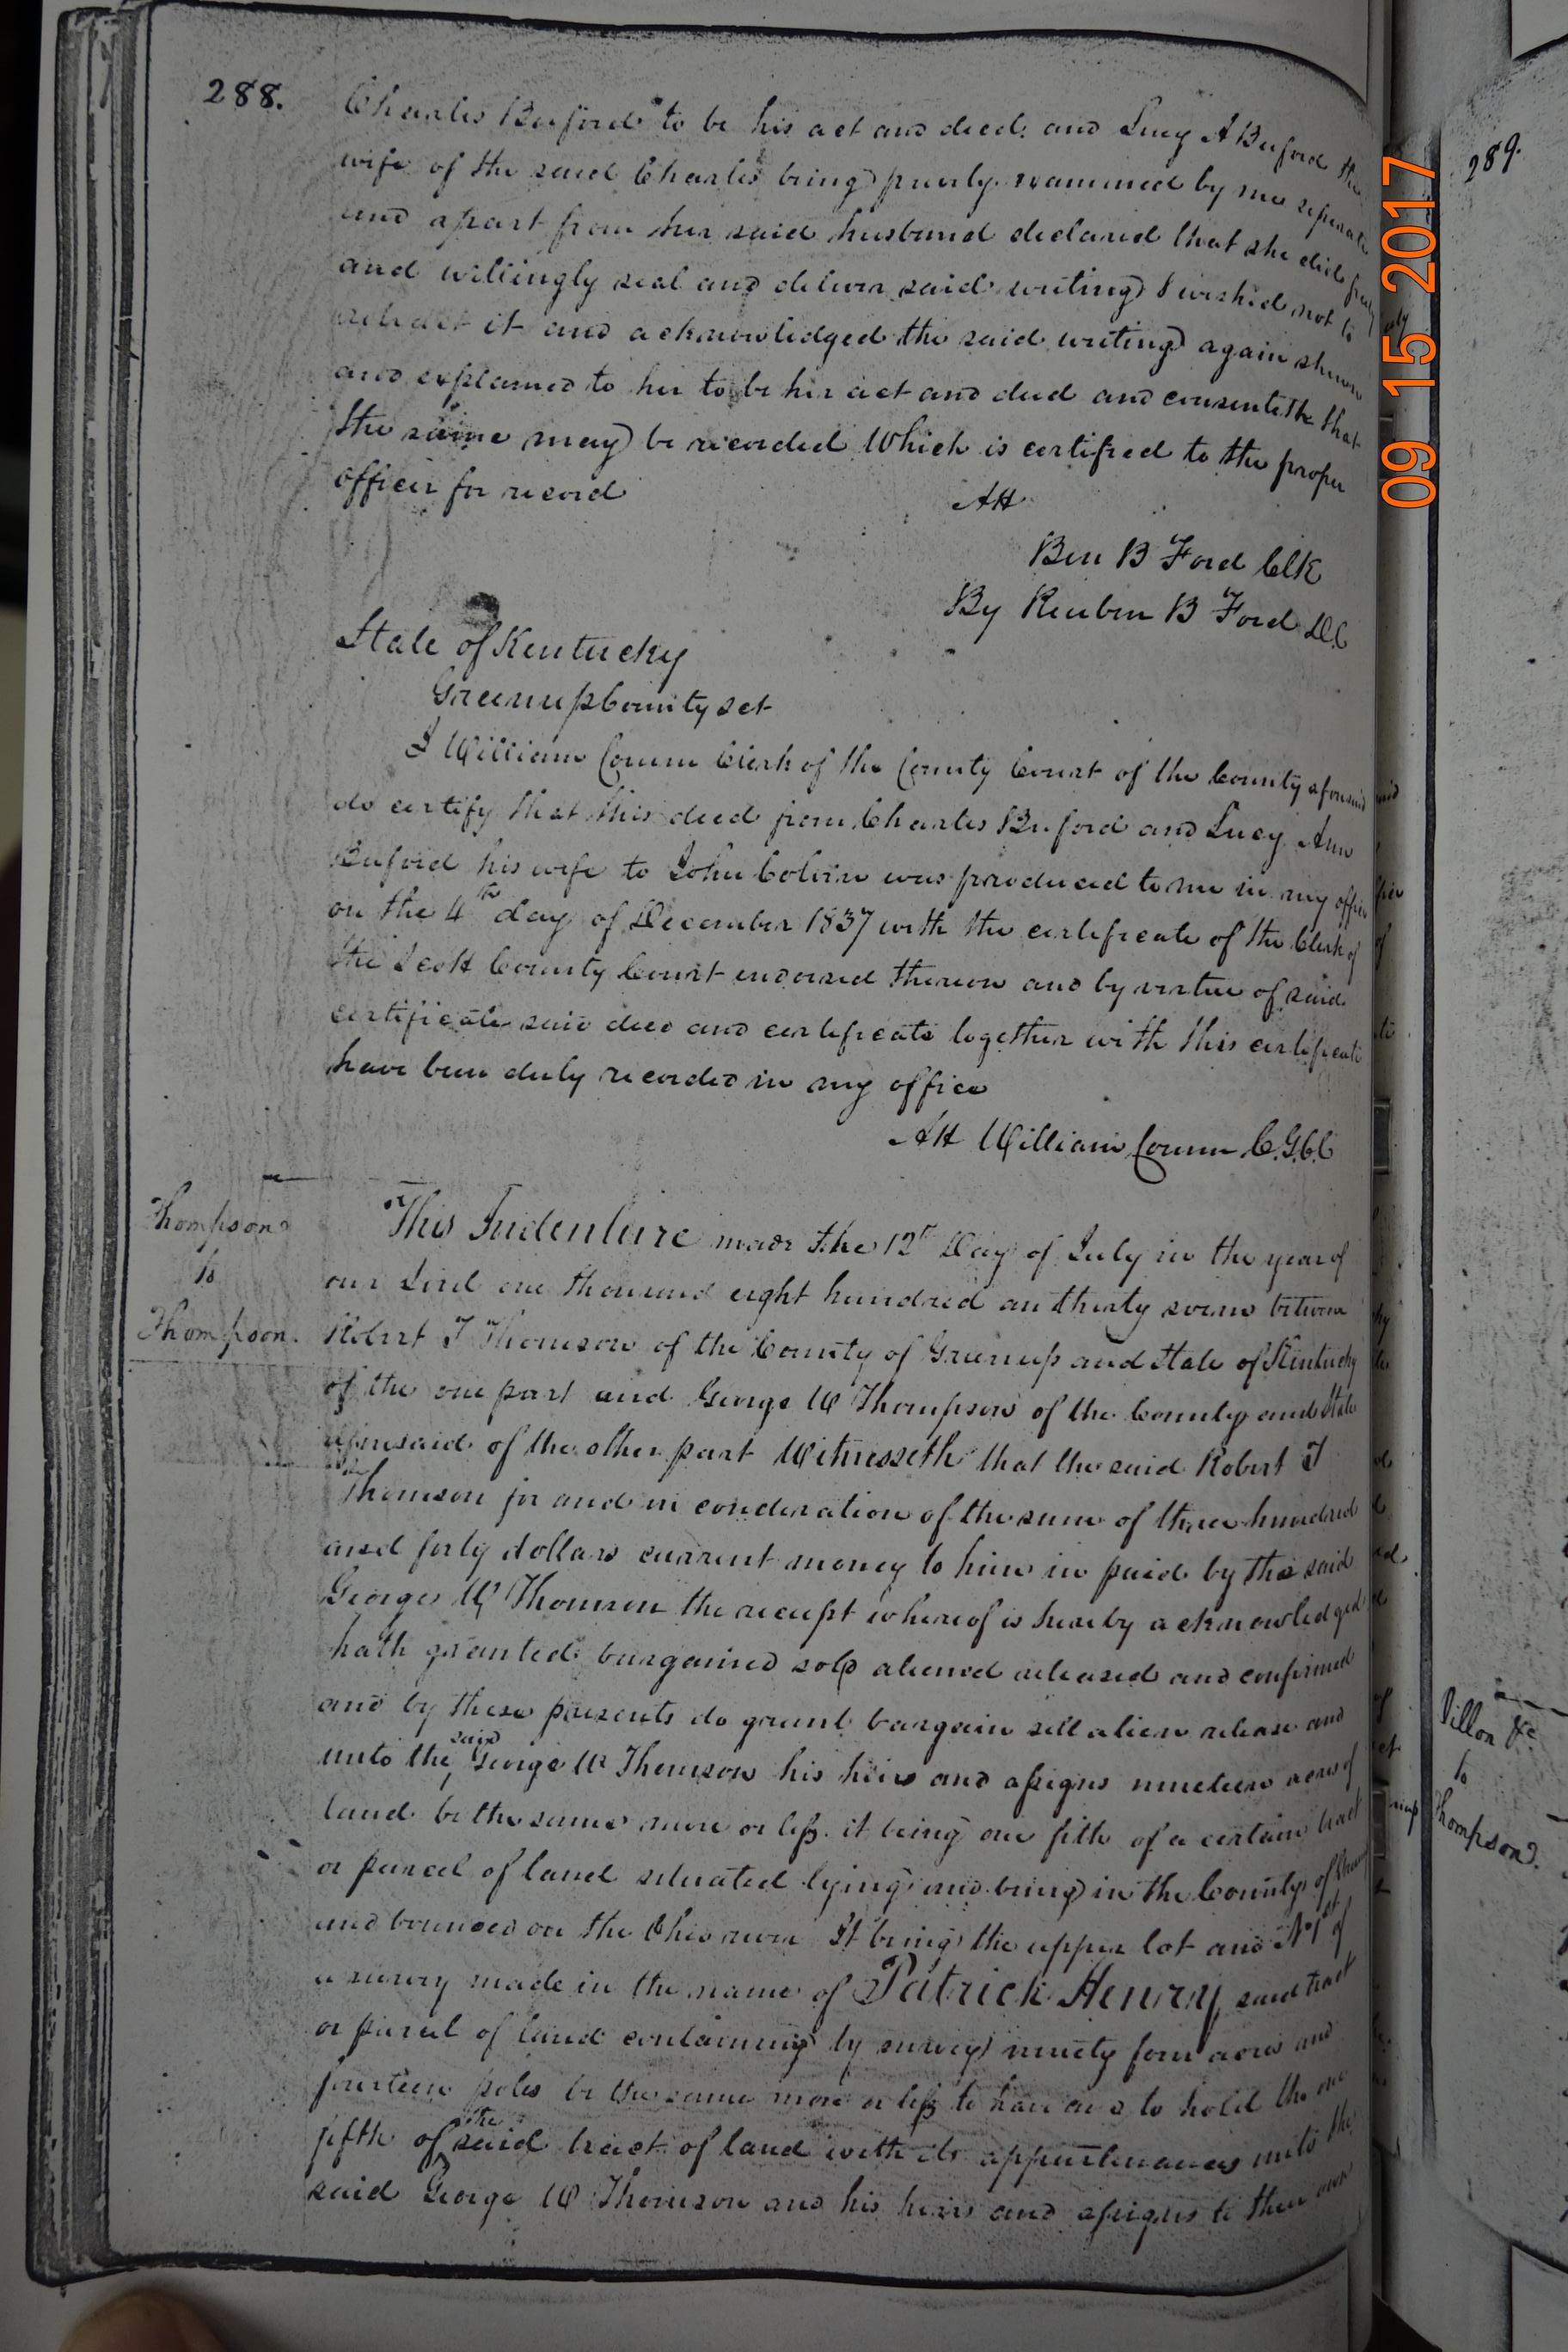 288.
Charles Buford to be his act and deed. and Lucy A Buford the
wife of the said Charles being privily examined by me seperate
and apart from her said husband declared that she did freely
and willingly seal and deliver said writing & wished not to
retract it and acknowledged the said writing again shewn
and explained to her to be her act and deed and consenteth that
the same may be recorded Which is certified to the proper
officer for record
Att
Ben B Ford Clk
By Reuben B Ford D.C
State of Kentucky
Greenup County sct
I William Corum Clerk of the County Court of the County aforesaid
do certify that this deed from Charles Buford and Lucy Ann
Buford his wife to John Colvin was produced to me in my office
on the 4th day of December 1837 with the certificate of the Clerk of
the Scott County Court endorsed thereon and by virtue of said
certificate said deed and certificate together with this certificate
have been duly recorded in my office
Att William Corum C.G.C.C
Thompson
to
Thompson.
This Indenture made the 12th Day of July in the year of
our Lord one thousand eight hundred an thirty seven between
Robert T Thomson of the County of Greenup and State of Kentucky
of the one part and George W Thompson of the County and State
aforesaid of the other part Witnesseth that the said Robert T
Thomson for and in conderation of the sum of three hundred
and forty dollars current money to him in paid by the said
George W Thomson the receipt whereof is hereby acknowledged
hath granted bargained sold aliened released and confirmed
and by these presents do grant bargain sell alien release and
unto the said George W Thomson his heirs and assigns nineteen acres of
land be the same more or less. it being one fifth of a certain tract
or parcel of land situated lying and being in the County of
and bounded on the Ohio river It being the upper lot and No 1st of
a survey made in the name of Patrick Henry said tract
or parcel of land containing by survey ninety four acres and
fourteen poles be the same more or less to have and to hold the one
fifth of the said tract of land with its appurtenances unto the
said George W Thomson and his heirs and assigns to their own
09 15 2017
289.
Dillon &c
to
Thompson.